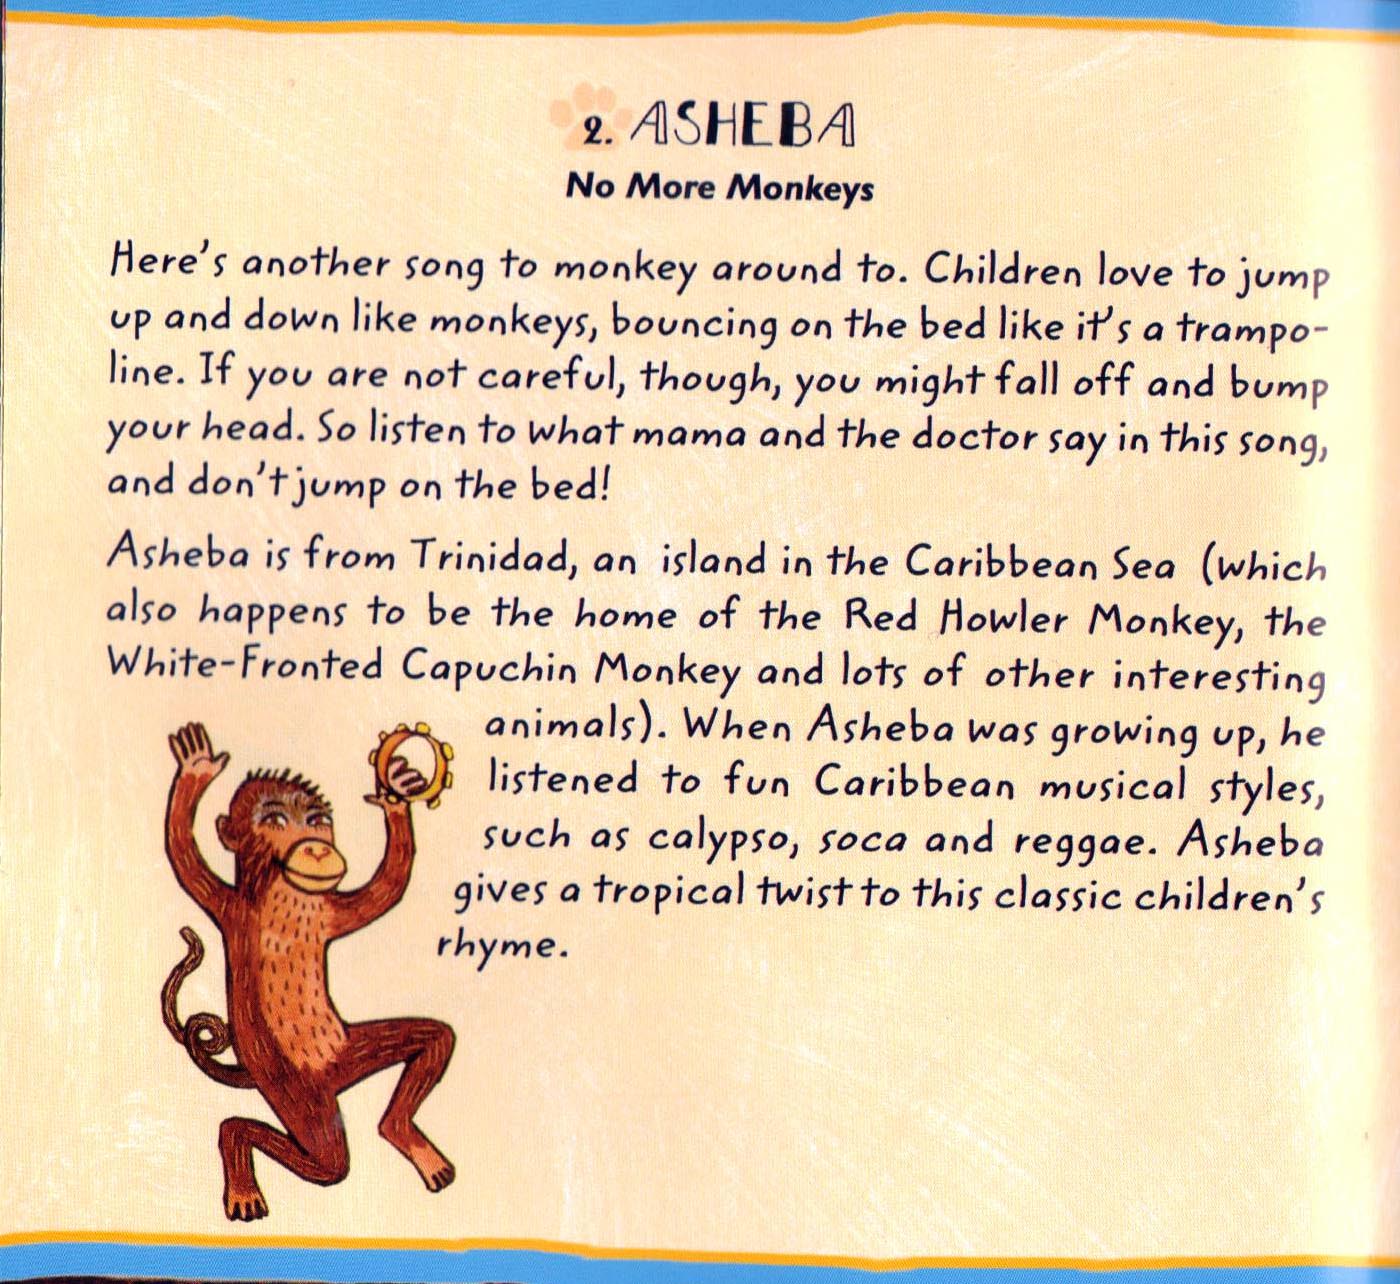 2. ASHEBA
No More Monkeys
Here's another song to monkey around to. Children love to jump
up and down like monkeys, bouncing on the bed like it's a trampo-
line. If you are not careful, though, you might fall off and bump
your head. So listen to what mama and the doctor say in this song,
and don't jump on the bed!
Asheba is from Trinidad, an island in the Caribbean Sea (which
also happens to be the home of the Red Howler Monkey, the
White-Fronted Capuchin Monkey and lots of other interesting
animals). When Asheba was growing up, he
listened to fun Caribbean musical styles,
such as calypso, soca and reggae. Asheba
gives a tropical twist to this classic children's
rhyme.